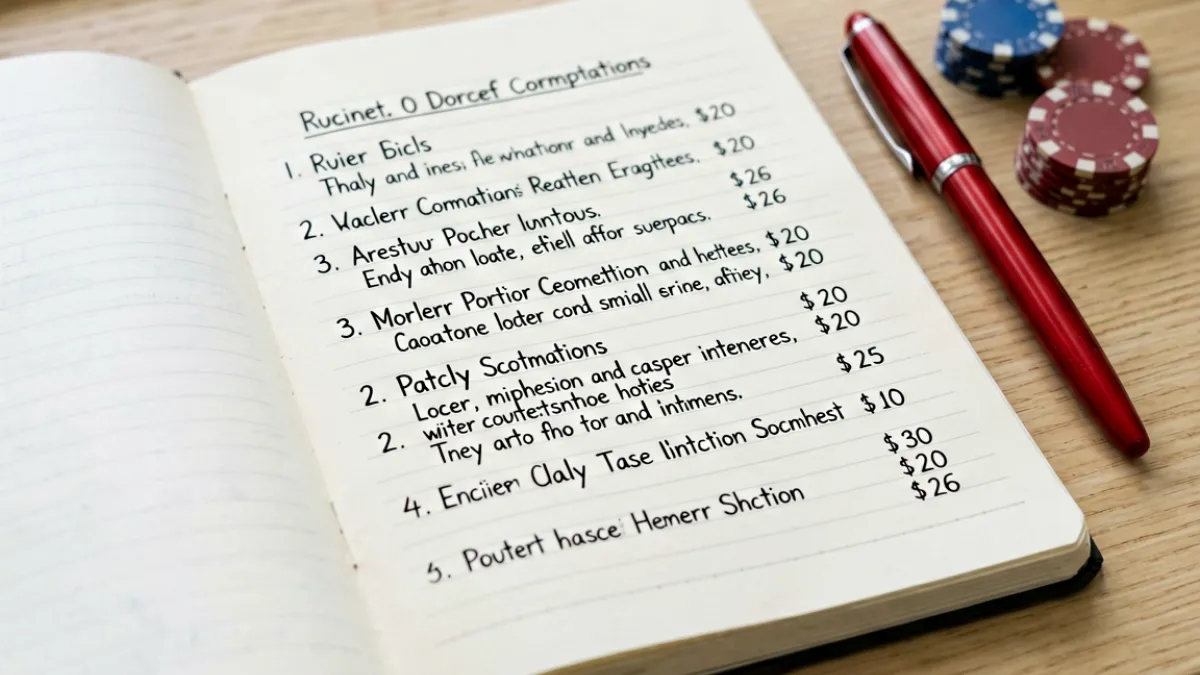 Rucinet. O Dorcef Cormptations
1. Ruier Bicls
Thaly and ines; fle whationr and Inyedes. $20
2. Vaclerr Commatians Reatten Eragttees. $20
3. Arestuur Pocher Iunntous. $26
Endy athon loate, efiell affor suerpacs. $26
3. Morlerr Portior Ceomettion and hettees, $20
Caoatone loder cord smiall srine, aftiey, $20
2. Patcly Scotmations $20
Locer, miphesion and casper inteneres, $20
2. witer coutetsnthoe hoties
Tney arto fho tor and intimens. $25
4. Enciier Claly Tase lintction Socmhest $10
$30
$20
5. Poutert hasce Hemerr Shction $26